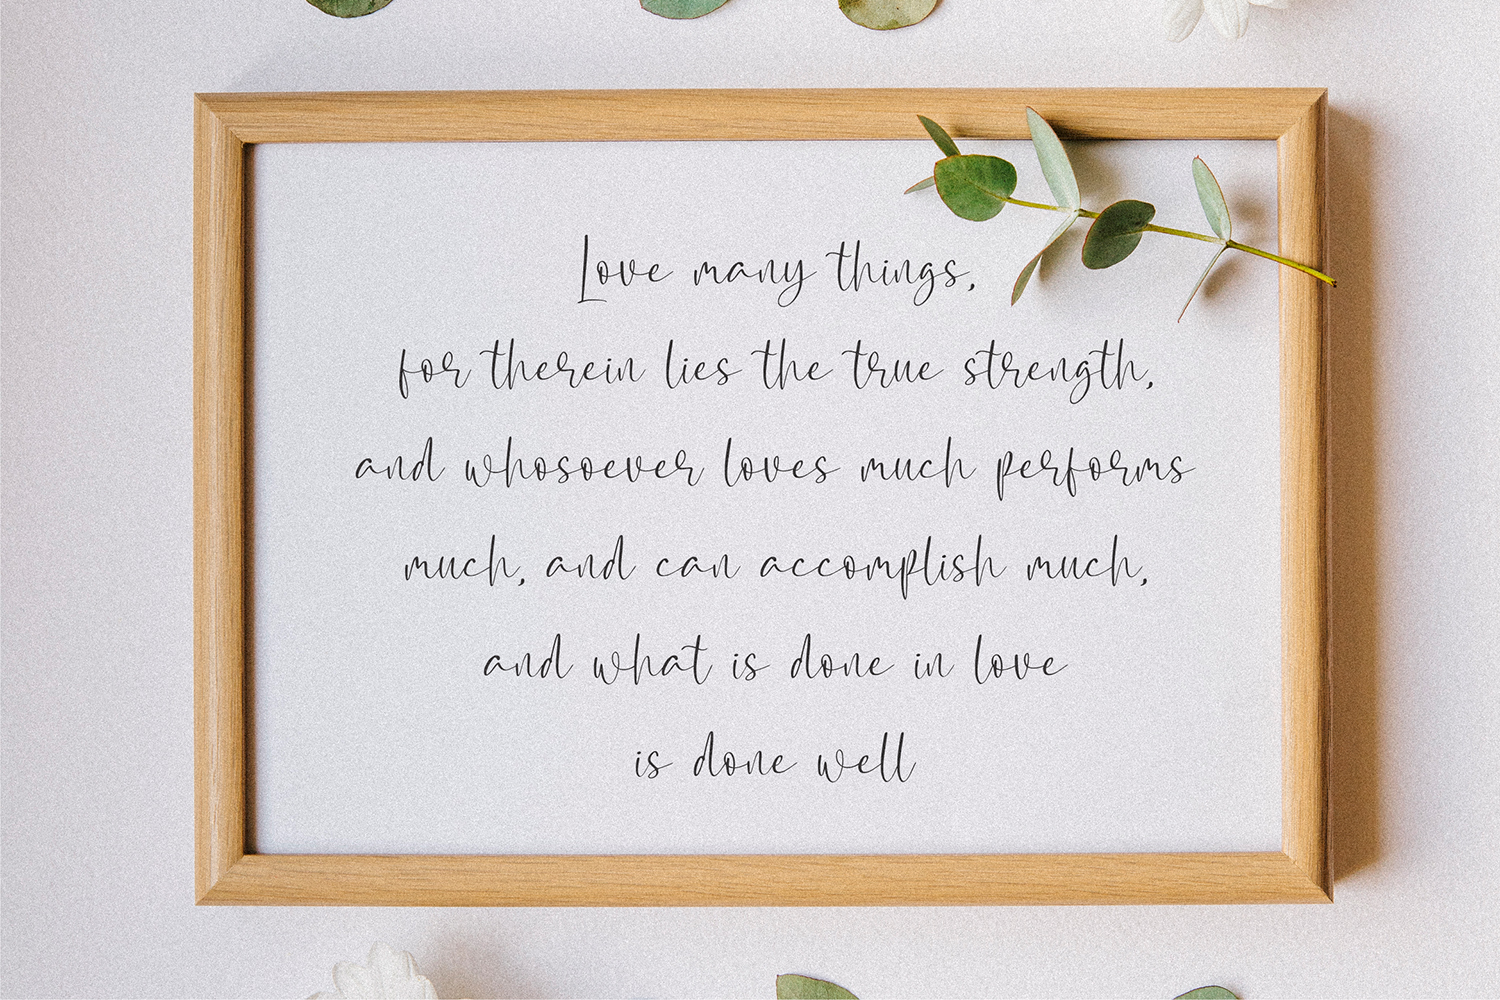 Love many things,
for therein lies the true strength,
and whosoever loves much performs
much, and can accomplish much,
and what is done in love
is done well